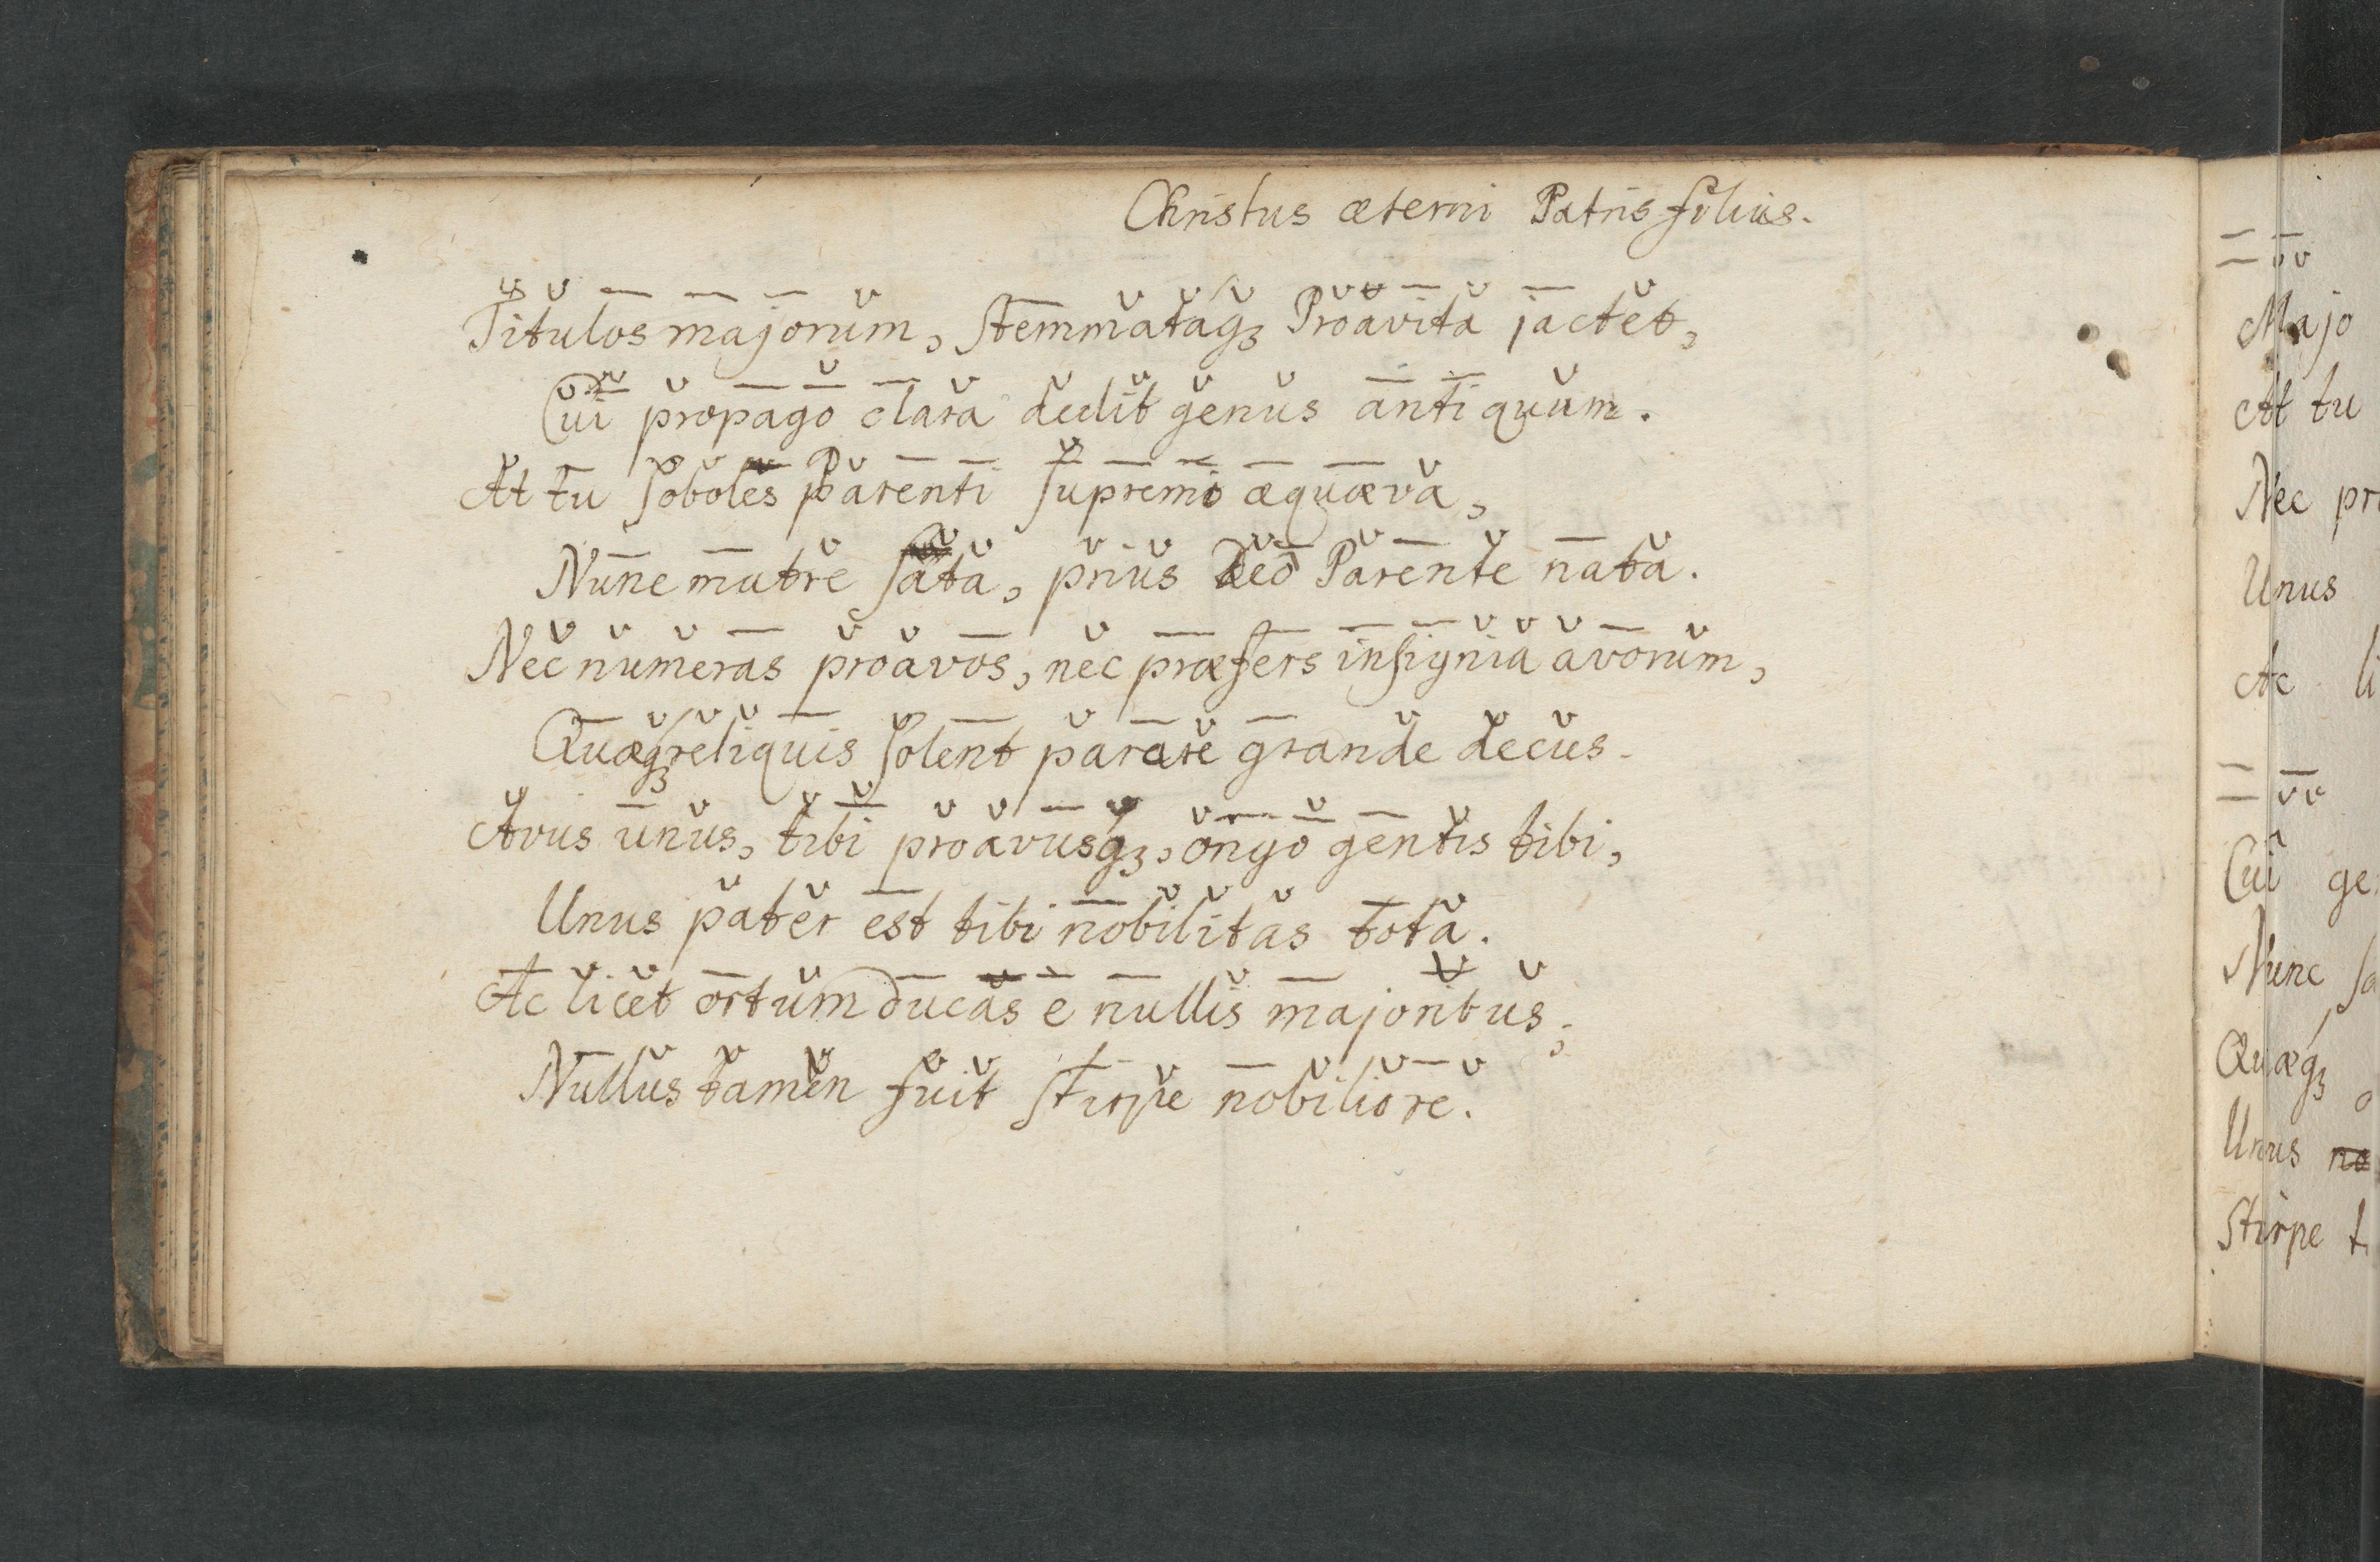 Christus æterni Patris filius.
Titulos majorum, stemmataq₃ Proavita jactet,
Cui propago clara dedit genus antiquum.
At tu soboles parenti supremo æquæva,
Nunc matre sata, prius Deo Parente nata.
Nec numeras proavos, nec præfers insignia avorum,
Quæq₃ reliquis solent parare grande decus.
Avus unus, tibi proavusq₃, origo gentis tibi,
Unus pater est tibi nobilitas tota.
Ac licet ortum ducas e nullis majoribus;
Nullus tamen fuit stirpe nobiliore.
Majo
At tu
Nec pr
Unus
Ac li
Cui ge
Nunc sa
Quæq₃
Unus no
Stirpe t